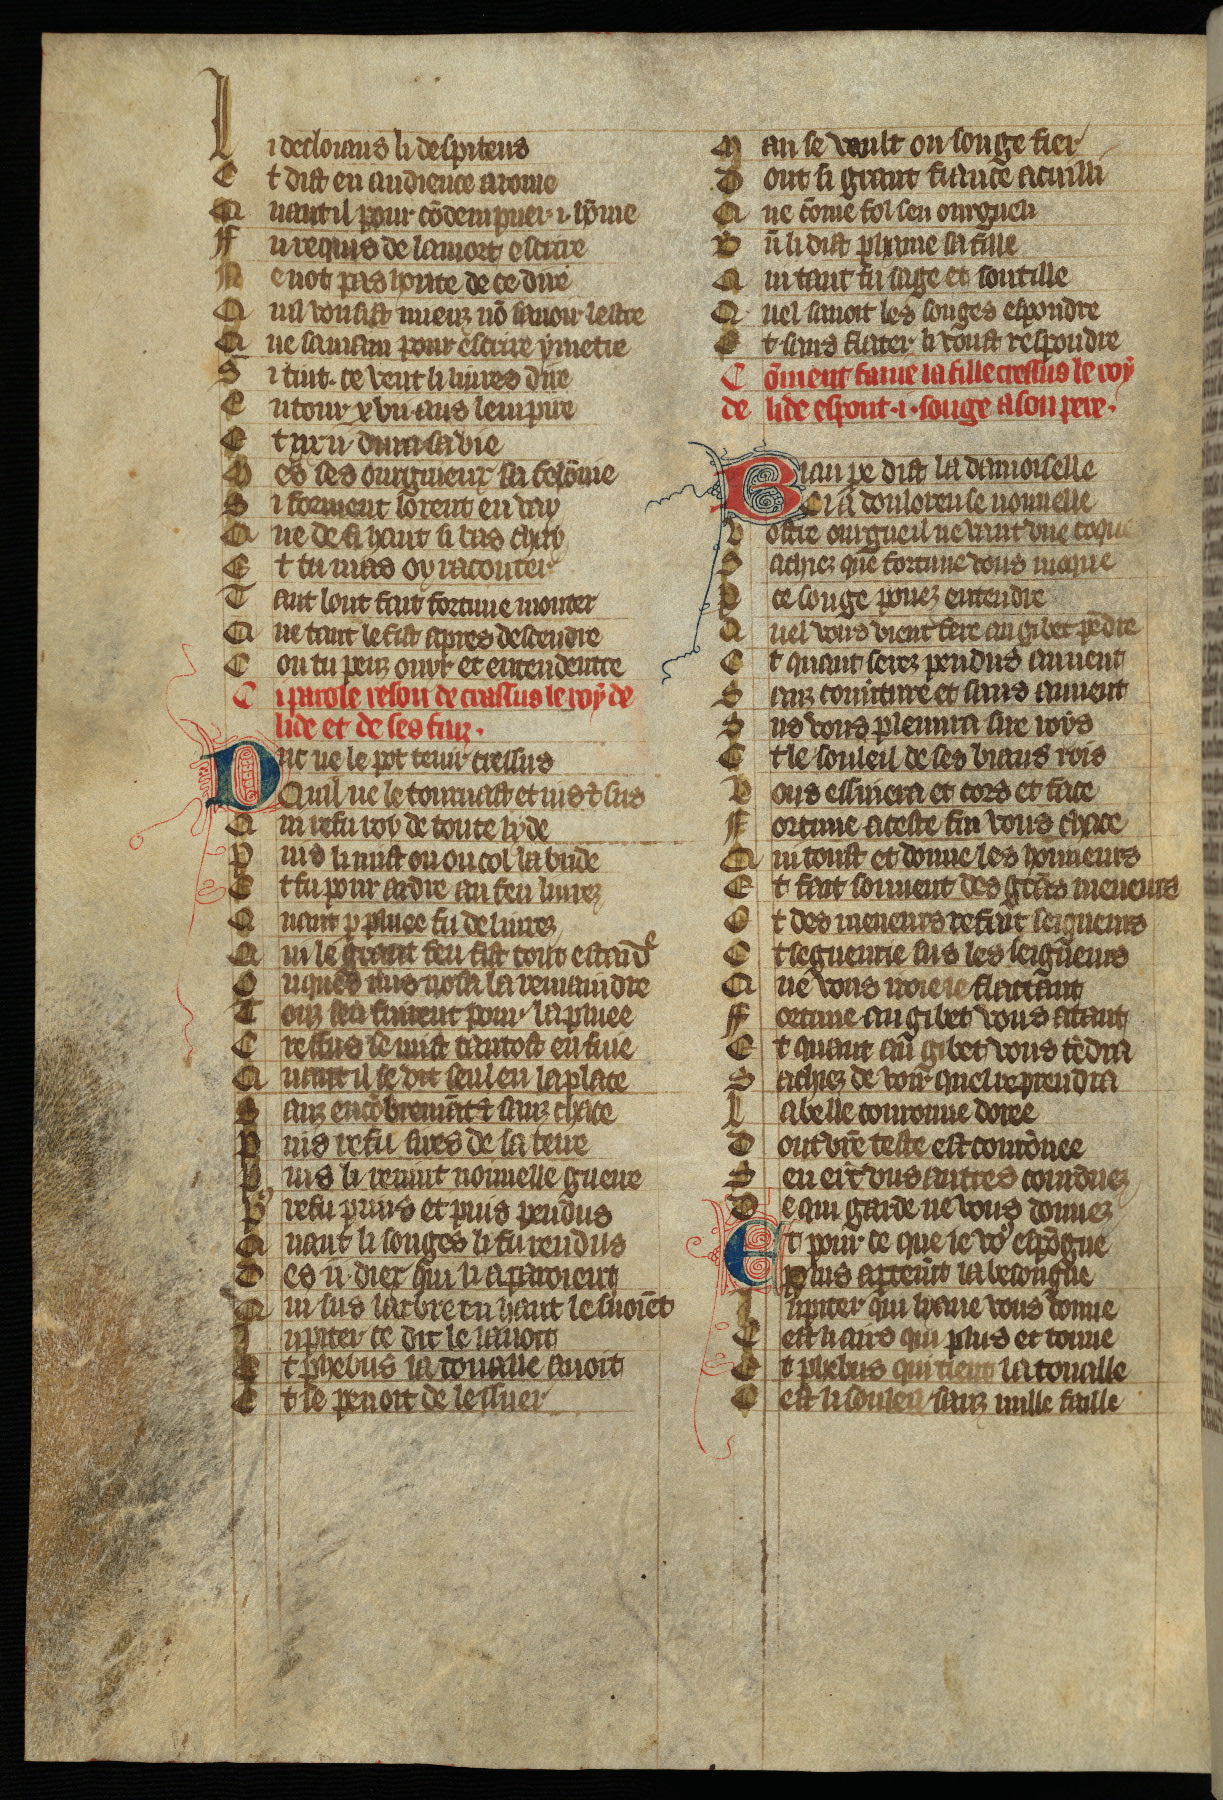 Li desloiaus li despiteus
Et dist en audience a rome
Quant il pour cōdempner .i. hōme
Fu requis de la mort escrire
Ne not pas honte de ce dire
Quil vousist mieuz nō sauoir lestre
Que sa main pour escrire y metre
Si tint. ce veut li liures dire
Entour xvii ans lempire
Et xxxii dura sa vie
Mes ses ourgueux sa felōnie
Si forment lorent en vay
Que de si haut si bas chay
Et tu mas oy raconter
Tant lout fait fortune monter
Que tant le fist apres descendre
Con tu peuz ouyr et entendentre
Ci parole reson de crassus le roy de
lide et de ses faiz.
Dnc ne le pot tenir cressus
Quil ne le tournast et ius & sus
Qui refu roy de toute lyde
Puis li mist on ou col la bride
Et fu pour ardre au feu liurez
Quant p pluiee fu deliurez
Qui le grant feu fist tout estaīdre
Onques nus nosa la remaindre
Touz sen fuirent pour la pluiee
Cressus se mist tantost en fuie
Quant il se vit seul en la place
Sanz encōbremāt & sanz chace
Puis refu sires de la terre
Puis li reuint nouuelle guerre
Puis refu prins et puis pendus
Quant li songes li fu rendus
Des ii. diex qui li aparoient
Qui sus larbre en haut le suoiēt
Jupiter ce dit le lauoit
Et phebus la touaille auoit
Et se penoit de lessuer
Mau se voult ou songe fier
Dont si grant fiance acuilli
Que cōme fol sen ourgueli
Bn li dist phanie sa fille
Qui tant fu sage et soutille
Quel sauoit les songes espondre
Et sans flater li voust respondre
Cōment fanie la fille cressus le roy
de lide espont .i. songe a son pere.
Biau pe dist la damoiselle
Ci a douloreuse nouuelle
Vostre ourgueil ne vaut vne coque
Sachiez que fortune vous moque
P ce songe pouez entendre
Quel vous vient fere au gibet pēdre
Et quant serez pendus au uent
Sanz couuerture et sans auuent
Sus vous pleuura sire roys
Et le souleil de ses biaus rois
Vous essuiera et cors et face
Fortune a ceste fin vous chace
Qui toust et donne les honneurs
Et fait souuent des grās meneurs
Et des meneurs refait seigneurs
Et segneurie sus les seigneurs
Que vous iroie ie flattant
Fortune au gibet vous atant
Et quant au gibet vous tēdra
Sachiez de voir quel reprendra
La belle couronne doree
Dont vr̄e teste est courōnee
Sen ert vns autres courōnez
De qui garde ne vous donnez
Et pour ce que ie vo9 espōgne
Plus apertemēt la besongne
Jupiter qui lyaue vous donne
Cest li airs qui plus et tonne
Et phebus qui tient la touaille
Cest li souleil sanz nulle faille